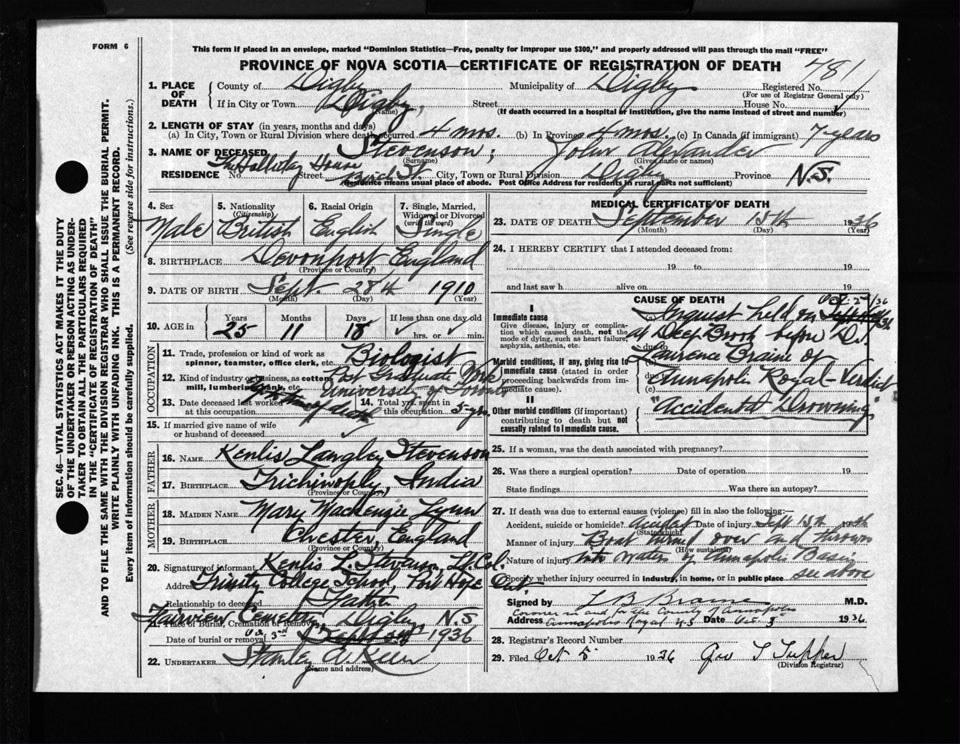 FORM 6
This form if placed in an envelope, marked "Dominion Statistics—Free, penalty for improper use $300," and properly addressed will pass through the mail "FREE"
PROVINCE OF NOVA SCOTIA—CERTIFICATE OF REGISTRATION OF DEATH
781
1. PLACE OF DEATH
County of Digby Municipality of Digby Registered No.
(For use of Registrar General only)
If in City or Town Digby, Street House No.
(Name) (If death occurred in a hospital or institution, give the name instead of street and number)
2. LENGTH OF STAY (in years, months and days)
(a) In City, Town or Rural Division where death occurred 4 mos. (b) In Province 4 mos. (c) In Canada (if immigrant) 7 years
3. NAME OF DECEASED Stevenson, John Alexander
(Surname) (Given name or names)
RESIDENCE No. The Halliday House Street Birch St. City, Town or Rural Division Digby Province N.S.
(Residence means usual place of abode. Post Office Address for residents in rural parts not sufficient)
4. Sex
Male
5. Nationality (Citizenship)
British
6. Racial Origin
English
7. Single, Married, Widowed or Divorced (write the word)
Single
8. BIRTHPLACE Devonport England
(Province or Country)
9. DATE OF BIRTH Sept. 28th 1910
(Month) (Day) (Year)
10. AGE in Years Months Days If less than one day old
25 11 18 hrs. or min.
OCCUPATION
11. Trade, profession or kind of work as spinner, teamster, office clerk, etc. Biologist
12. Kind of industry or business, as cotton mill, lumbering, bank, etc. Post Graduate Work University of Toronto
13. Date deceased last worked at this occupation
14. Total yrs. spent in this occupation 5 yrs
15. If married give name of wife or husband of deceased
FATHER
16. NAME Kenlis Langley Stevenson
17. BIRTHPLACE Trichinoply, India
(Province or Country)
MOTHER
18. MAIDEN NAME Mary Mackenzie Lynn
19. BIRTHPLACE Chester, England
(Province or Country)
20. Signature of informant Kenlis L. Stevenson, Lt. Col.
Address Trinity College School, Port Hope Ont.
Relationship to deceased Father
21. Place of Burial, Cremation or Removal Fairview Cemetery Digby, N.S.
Date of burial or removal Oct. 3rd 1936
22. UNDERTAKER Stanley E. Keen
(Name and address)
MEDICAL CERTIFICATE OF DEATH
23. DATE OF DEATH September 15th 1936
(Month) (Day) (Year)
24. I HEREBY CERTIFY that I attended deceased from:
19 to 19
and last saw h alive on 19
CAUSE OF DEATH
I
Immediate cause
Give disease, injury or complication which caused death, not the mode of dying, such as heart failure, asphyxia, asthenia, etc.
Morbid conditions, if any, giving rise to immediate cause (stated in order proceeding backwards from immediate cause).
II
Other morbid conditions (if important) contributing to death but not causally related to immediate cause.
(a) Inquest held on
at Deep Brook before Dr.
Laurence Braine of
Annapolis Royal—Verdict
"Accidental Drowning"
25. If a woman, was the death associated with pregnancy?
26. Was there a surgical operation? Date of operation 19
State findings Was there an autopsy?
27. If death was due to external causes (violence) fill in also the following:—
Accident, suicide or homicide? Date of injury Sept 15th
(State which)
Manner of injury Boat turned over and thrown
(How sustained)
Nature of injury into waters of Annapolis Basin
Specify whether injury occurred in industry, in home, or in public place see above
Signed by L B Braine M.D.
Coroner in and for the County of Annapolis
Address Annapolis Royal N.S Date Oct. 3 1936
28. Registrar's Record Number
29. Filed Oct 5 1936 Geo T Tupper
(Division Registrar)
SEC. 46—VITAL STATISTICS ACT MAKES IT THE DUTY
OF THE UNDERTAKER OR PERSON ACTING AS UNDERTAKER TO OBTAIN ALL THE PARTICULARS REQUIRED
IN THE "CERTIFICATE OF REGISTRATION OF DEATH"
AND TO FILE THE SAME WITH THE DIVISION REGISTRAR WHO SHALL ISSUE THE BURIAL PERMIT.
WRITE PLAINLY WITH UNFADING INK. THIS IS A PERMANENT RECORD.
Every item of information should be carefully supplied. (See reverse side for instructions.)